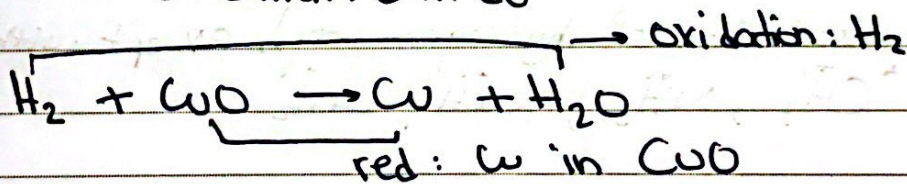 → oxidation: H₂
H₂ + CuO → Cu + H₂O
red: Cu in CuO